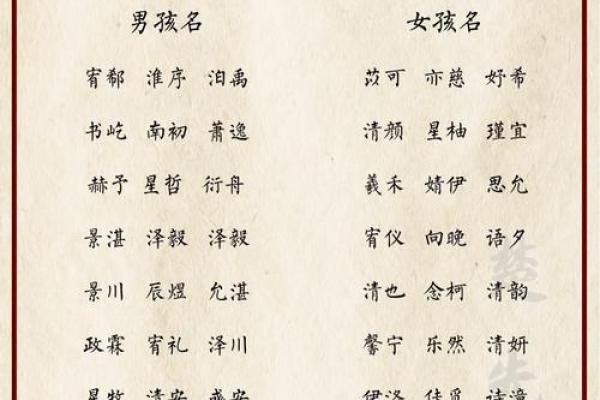 男孩名 女孩名
宥郗 淮序 洎禹 苡可 亦慈 妤希
书屹 南初 萧逸 清颜 星柚 瑾宜
赫予 星哲 衍舟 羲禾 婧伊 思允
景湛 泽毅 泽毅 宥仪 向晚 语夕
景川 辰煜 允湛 清也 念柯 清韵
政霖 宥礼 泽川 馨宁 乐然 清妍